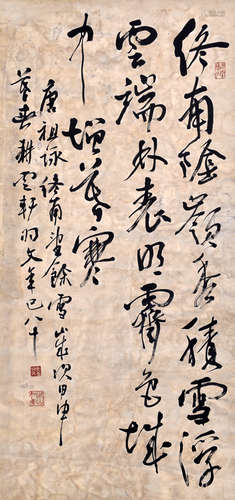 終南陰嶺秀積雪浮
雲端林表明霽色城
中增暮寒
唐祖詠終南望餘雪歲次甲申
春耕雲軒羽文年已八十